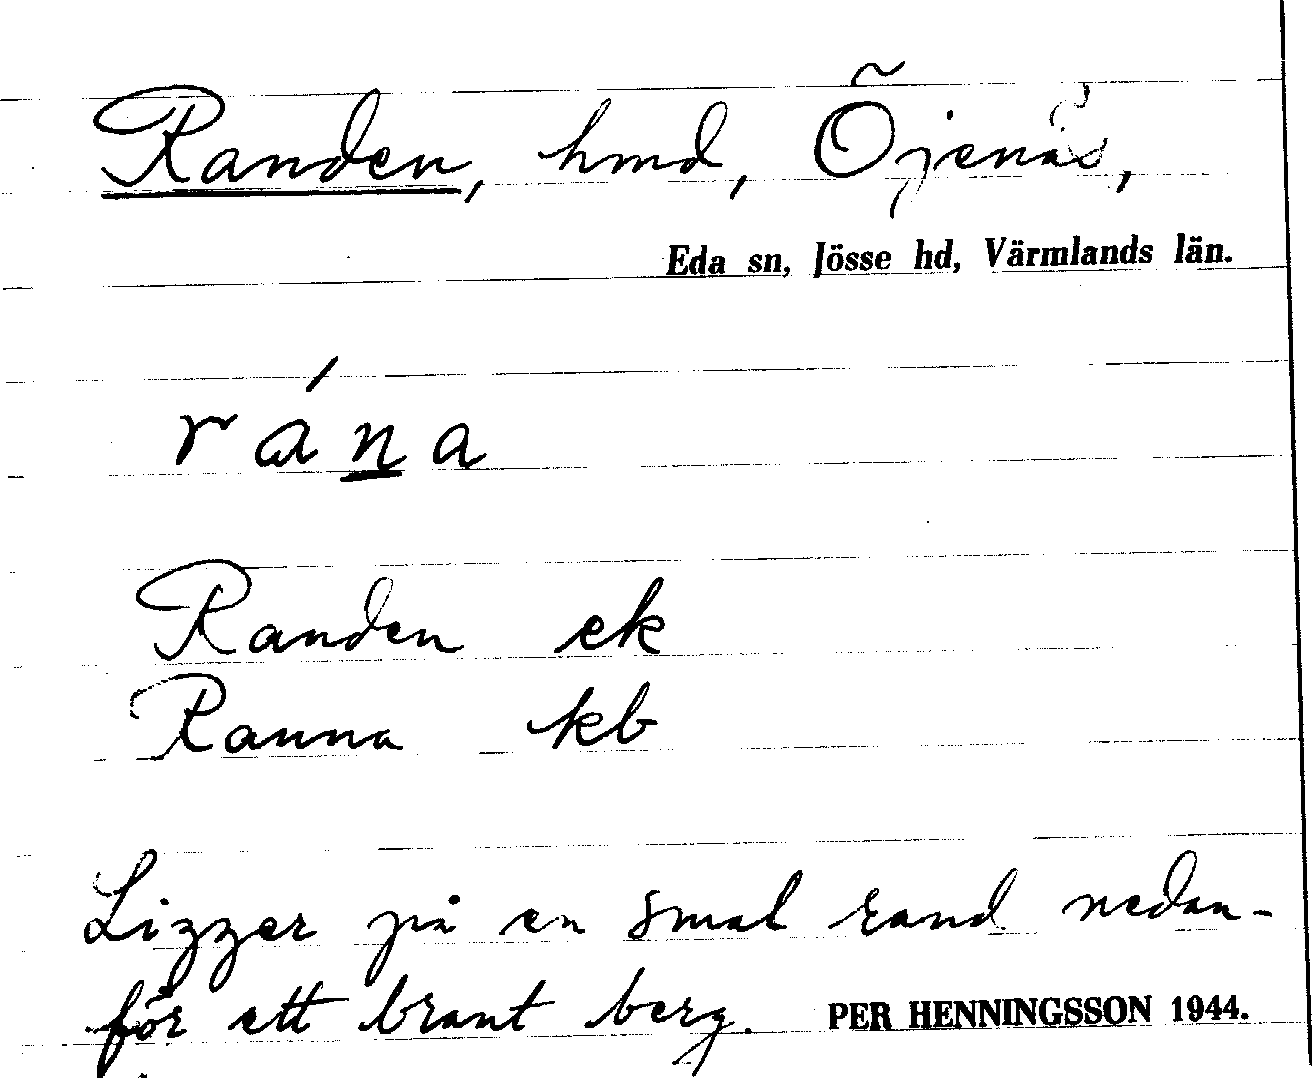 Randen, hmd, Öjenäs,
Eda sn, Jösse hd, Värmlands län.
rána
Randen ek
Ranna kb
Ligger på en smal rand nedan-
för ett brant berg. PER HENNINGSSON 1944.